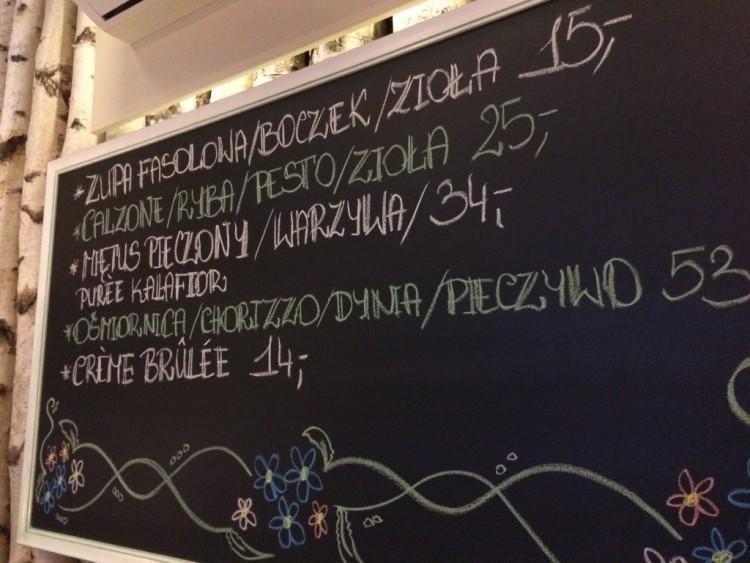 *ZUPA FASOLOWA/BOCZEK/ZIOŁA 15,-
*CALZONE/RYBA/PESTO/ZIOŁA 25,-
*MIĘTUS PIECZONY/WARZYWA/34,-
PURÉE KALAFIOR
*OŚMIORNICA/CHORIZZO/DYNIA/PIECZYWO 53
*CRÈME BRÛLÉE 14,-